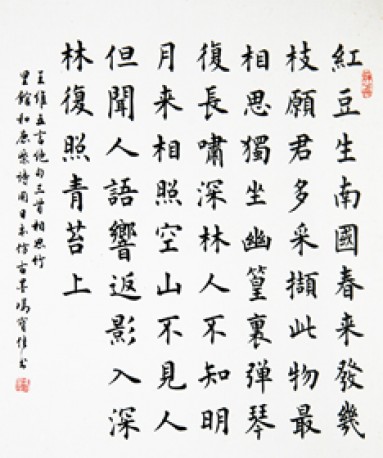 紅豆生南國春来發幾
枝願君多采擷此物最
相思獨坐幽篁裏彈琴
復長嘯深林人不知明
月来相照空山不見人
但聞人語響返影入深
林復照青苔上
王維五言絶句三首相思竹
里館和鹿柴詩用日本仿古墨馮寶佳书